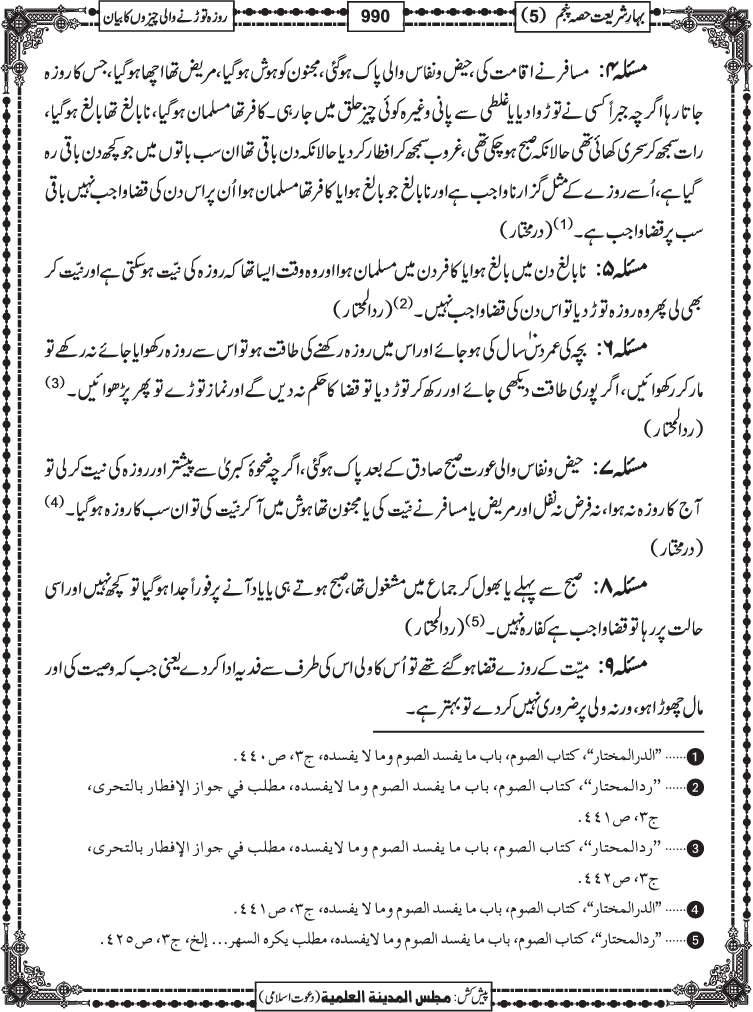 بہارِ شریعت حصہ پنجم (5)
990
روزہ توڑنے والی چیزوں کا بیان
مسئلہ ۴: مسافر نے اقامت کی، حیض و نفاس والی پاک ہوگئی، مجنون کو ہوش ہوگیا، مریض تھا اچھا ہوگیا، جس کا روزہ
جاتا رہا اگرچہ جبراً کسی نے توڑوا دیا یا غلطی سے پانی وغیرہ کوئی چیز حلق میں جا رہی۔ کافر تھا مسلمان ہوگیا، نابالغ تھا بالغ ہوگیا،
رات سمجھ کر سحری کھائی تھی حالانکہ صبح ہوچکی تھی، غروب سمجھ کر افطار کر دیا حالانکہ دن باقی تھا ان سب باتوں میں جو کچھ دن باقی رہ
گیا ہے، اُسے روزے کے مثل گزارنا واجب ہے اور نابالغ جو بالغ ہوا یا کافر تھا مسلمان ہوا اُن پر اس دن کی قضا واجب نہیں باقی
سب پر قضا واجب ہے۔ (1) (درمختار)
مسئلہ ۵: نابالغ دن میں بالغ ہوا یا کافر دن میں مسلمان ہوا اور وہ وقت ایسا تھا کہ روزہ کی نیّت ہوسکتی ہے اور نیّت کر
بھی لی پھر وہ روزہ توڑ دیا تو اس دن کی قضا واجب نہیں۔ (2) (ردالمحتار)
مسئلہ ۶: بچہ کی عمر دسؔ سال کی ہو جائے اور اس میں روزہ رکھنے کی طاقت ہو تو اس سے روزہ رکھوایا جائے نہ رکھے تو
مار کر رکھوائیں، اگر پوری طاقت دیکھی جائے اور رکھ کر توڑ دیا تو قضا کا حکم نہ دیں گے اور نماز توڑے تو پھر پڑھوائیں۔ (3)
(ردالمحتار)
مسئلہ ۷: حیض و نفاس والی عورت صبح صادق کے بعد پاک ہوگئی، اگرچہ ضحوۂ کبریٰ سے پیشتر اور روزہ کی نیت کر لی تو
آج کا روزہ نہ ہوا، نہ فرض نہ نفل اور مریض یا مسافر نے نیّت کی یا مجنون تھا ہوش میں آکر نیّت کی تو ان سب کا روزہ ہوگیا۔ (4)
(درمختار)
مسئلہ ۸: صبح سے پہلے یا بھول کر جماع میں مشغول تھا، صبح ہوتے ہی یا یاد آنے پر فوراً جدا ہوگیا تو کچھ نہیں اور اسی
حالت پر رہا تو قضا واجب ہے کفارہ نہیں۔ (5) (ردالمحتار)
مسئلہ ۹: میّت کے روزے قضا ہوگئے تھے تو اُس کا ولی اس کی طرف سے فدیہ ادا کر دے یعنی جب کہ وصیت کی اور
مال چھوڑا ہو، ورنہ ولی پر ضروری نہیں کر دے تو بہتر ہے۔
1 ...... ”الدرالمختار“، کتاب الصوم، باب ما يفسد الصوم وما لا يفسده، ج٣، ص٤٤٠.
2 ...... ”ردالمحتار“، کتاب الصوم، باب ما يفسد الصوم وما لايفسده، مطلب في جواز الإفطار بالتحری،
ج٣، ص٤٤١.
3 ...... ”ردالمحتار“، کتاب الصوم، باب ما يفسد الصوم وما لايفسده، مطلب في جواز الإفطار بالتحری،
ج٣، ص٤٤٢.
4 ...... ”الدرالمختار“، کتاب الصوم، باب ما يفسد الصوم وما لا يفسده، ج٣، ص٤٤١.
5 ...... ”ردالمحتار“، کتاب الصوم، باب ما يفسد الصوم وما لايفسده، مطلب يكره السهر... إلخ، ج٣، ص٤٢٥.
پیش کش: مجلس المدینة العلمیة (دعوتِ اسلامی)